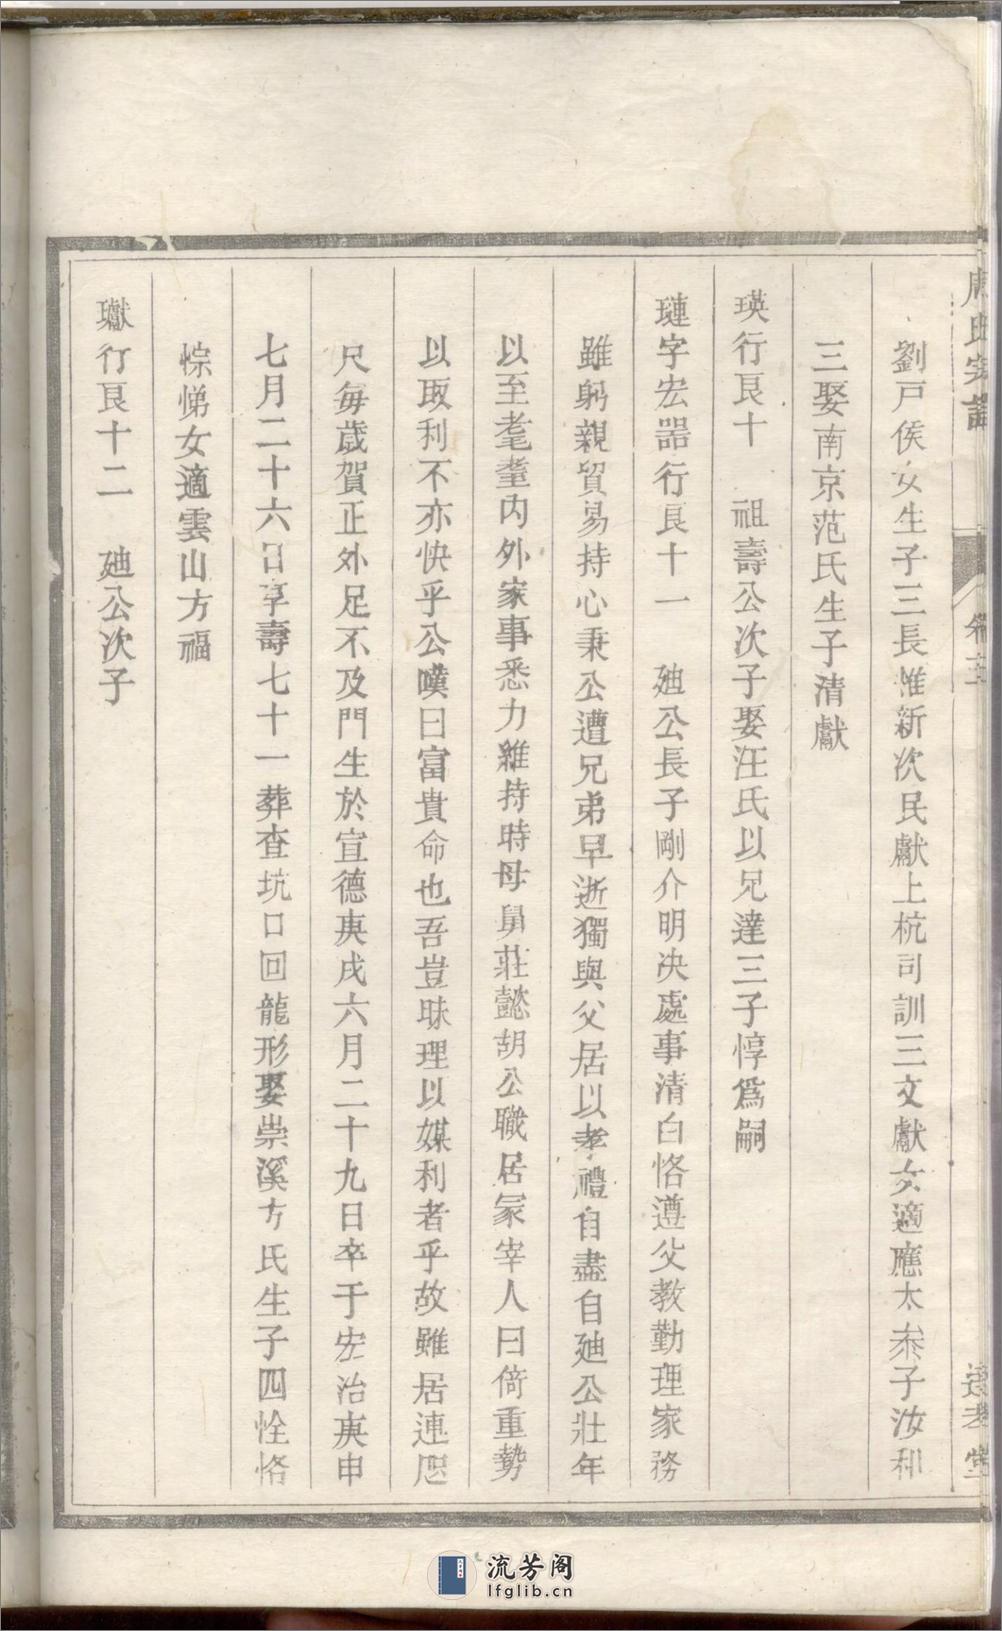 周氏宗譜
卷十
劉戸侯女生子三長惟新次民獻上杭司訓三文獻女適應太泰子汝和
三娶南京范氏生子清獻
瑛行艮十 祖壽公次子娶汪氏以兄達三子惇爲嗣
璉字宏器行艮十一 廸公長子剛介明决處事清白恪遵父教勤理家務
雖躬親貿易持心秉公遭兄弟早逝獨與父居以孝禮自盡自廸公壯年
以至耄耋内外家事悉力維持時母舅莊懿胡公職居冡宰人曰倚重勢
以取利不亦快乎公嘆曰富貴命也吾豈昧理以媒利者乎故雖居連咫
尺每歲賀正外足不及門生於宣德庚戌六月二十九日卒于宏治庚申
七月二十六日享壽七十一葬查坑口回龍形娶崇溪方氏生子四恮恪
悰悌女適雲山方福
瓛行艮十二 廸公次子
流芳阁
lfglib.cn